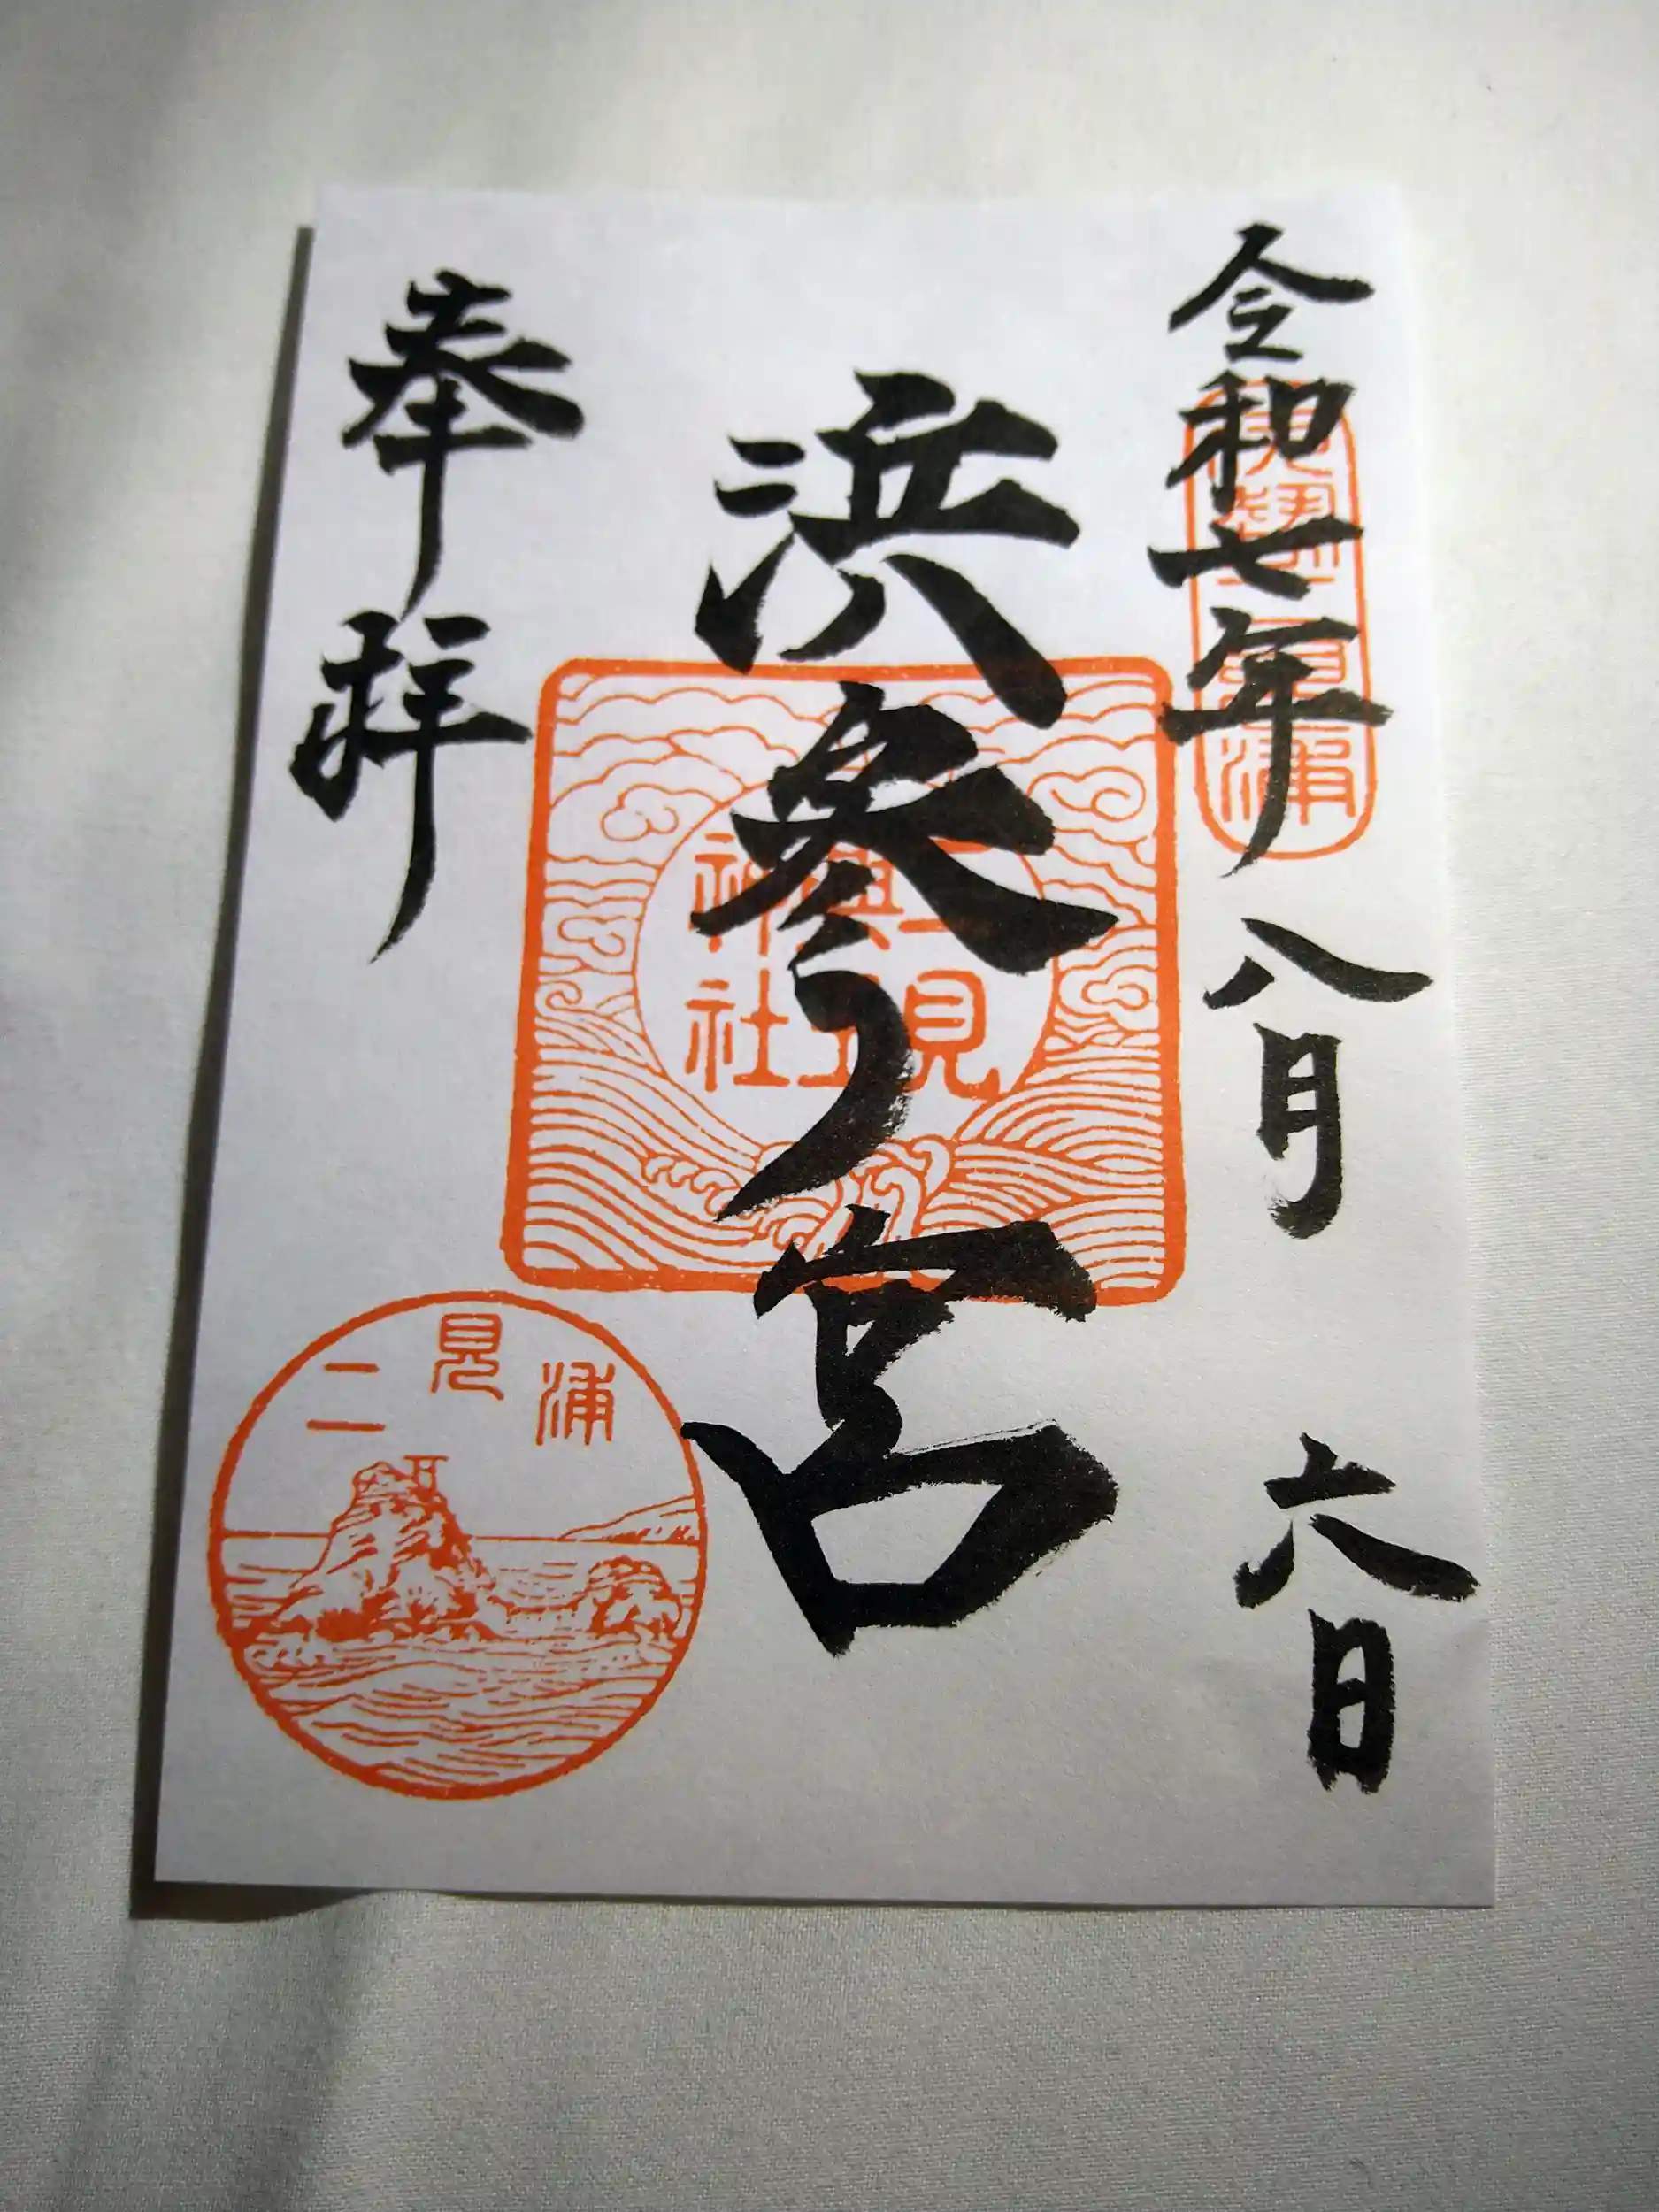 令和七年八月六日
浜参宮
奉拝
二見
興玉
神社
二見浦